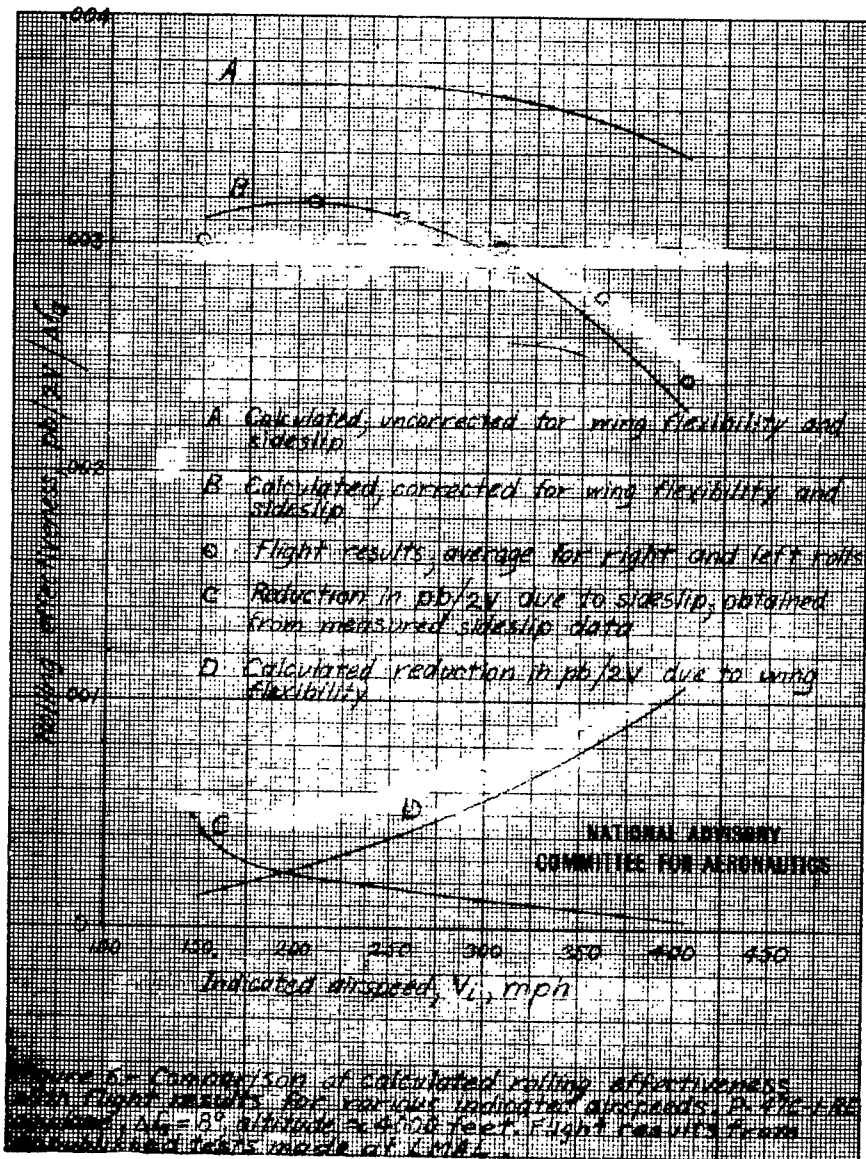 .004
A
B
.003
Rolling effectiveness, pb/2V/Δδa
A Calculated, uncorrected for wing flexibility and
sideslip
.002
B Calculated, corrected for wing flexibility and
sideslip
⊙ Flight results, average for right and left rolls
C Reduction in pb/2V due to sideslip, obtained
from measured sideslip data
D Calculated reduction in pb/2V due to wing
flexibility
.001
C
D
NATIONAL ADVISORY
COMMITTEE FOR AERONAUTICS
0
100 150 200 250 300 350 400 450
Indicated airspeed, Vi, mph
Figure 6.- Comparison of calculated rolling effectiveness
with flight results for various indicated airspeeds. P-47C-1-RE
airplane, = 8°, altitude ≈ 4000 feet. Flight results from
unpublished tests made at LMAL.